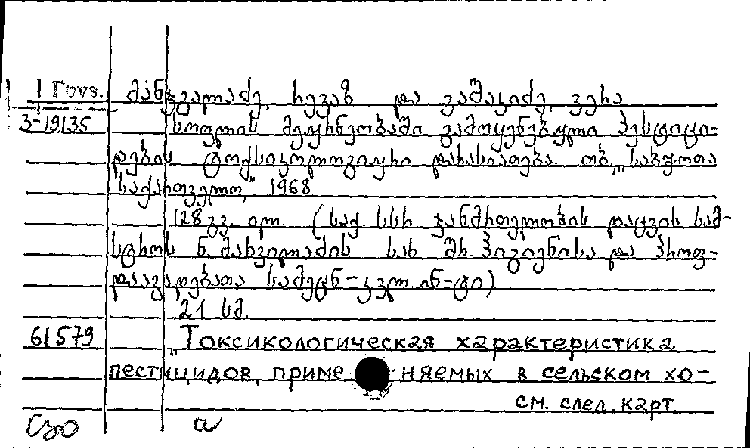 1 Govs. მანჯგალაძე, რევაზ და გამაკიძე, ვერა
3-19135 სოფლის მეურნეობაში გამოყენებული პესტიცი-
დების ტოქსიკოლოგიური დახასიათება. თბ., „საბჭოთა
საქართველო," 1968
128 გვ. ილ. (საქ. სსრ ჯანმრთელობის დაცვის სამ-
სტრო. ნ. მახვილაძის სახ. შრ. ჰიგიენისა და პროფ-
დაავადებათა სამეცნ-კვლ. ინ-ტი)
21 სმ.
61579 „Токсикологическая характеристика
пестицидов, приме няемых в сельском хо-
см. след. карт.
a